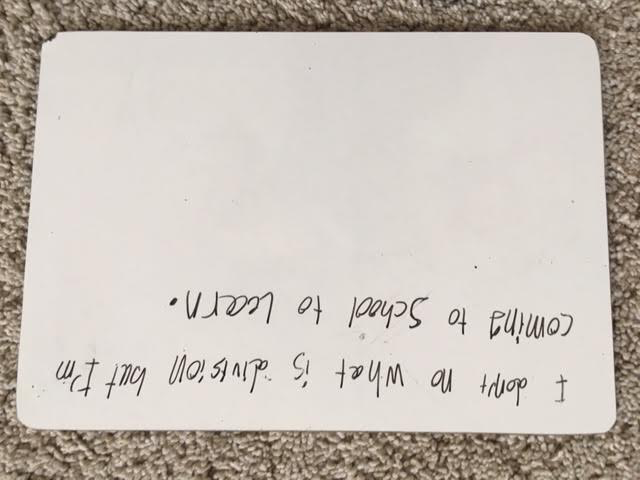 I don't no what is division but I'm
coming to School to Learn.